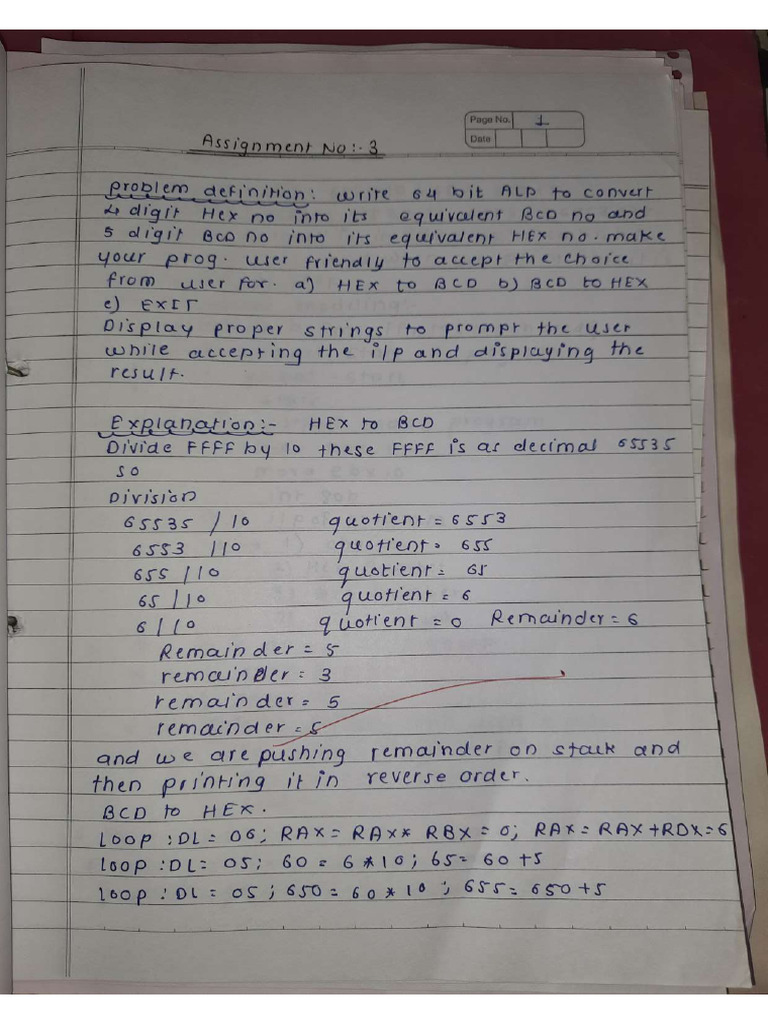 Page No. 1
Date
Assignment No:- 3
Problem definition: Write 64 bit ALP to convert
4 digit Hex no into its equivalent BCD no and
5 digit BCD no into its equivalent HEX no. make
your prog. user friendly to accept the choice
from user for. a) HEX to BCD b) BCD to HEX
c) EXIT
Display proper strings to prompt the user
while accepting the i/p and displaying the
result.
Explanation:- HEX to BCD
Divide FFFF by 10 these FFFF is as decimal 65535
so
Division
65535 / 10 quotient = 6553
6553 / 10 quotient = 655
655 / 10 quotient = 65
65 / 10 quotient = 6
6 / 10 quotient = 0 Remainder = 6
Remainder = 5
remainder = 3
remainder = 5
remainder = 5
and we are pushing remainder on stack and
then printing it in reverse order.
BCD to HEX.
Loop : DL = 06; RAX = RAX * RBX = 0; RAX = RAX + RDX = 6
Loop : DL = 05; 60 = 6 * 10; 65 = 60 + 5
Loop : DL = 05; 650 = 60 * 10; 655 = 650 + 5